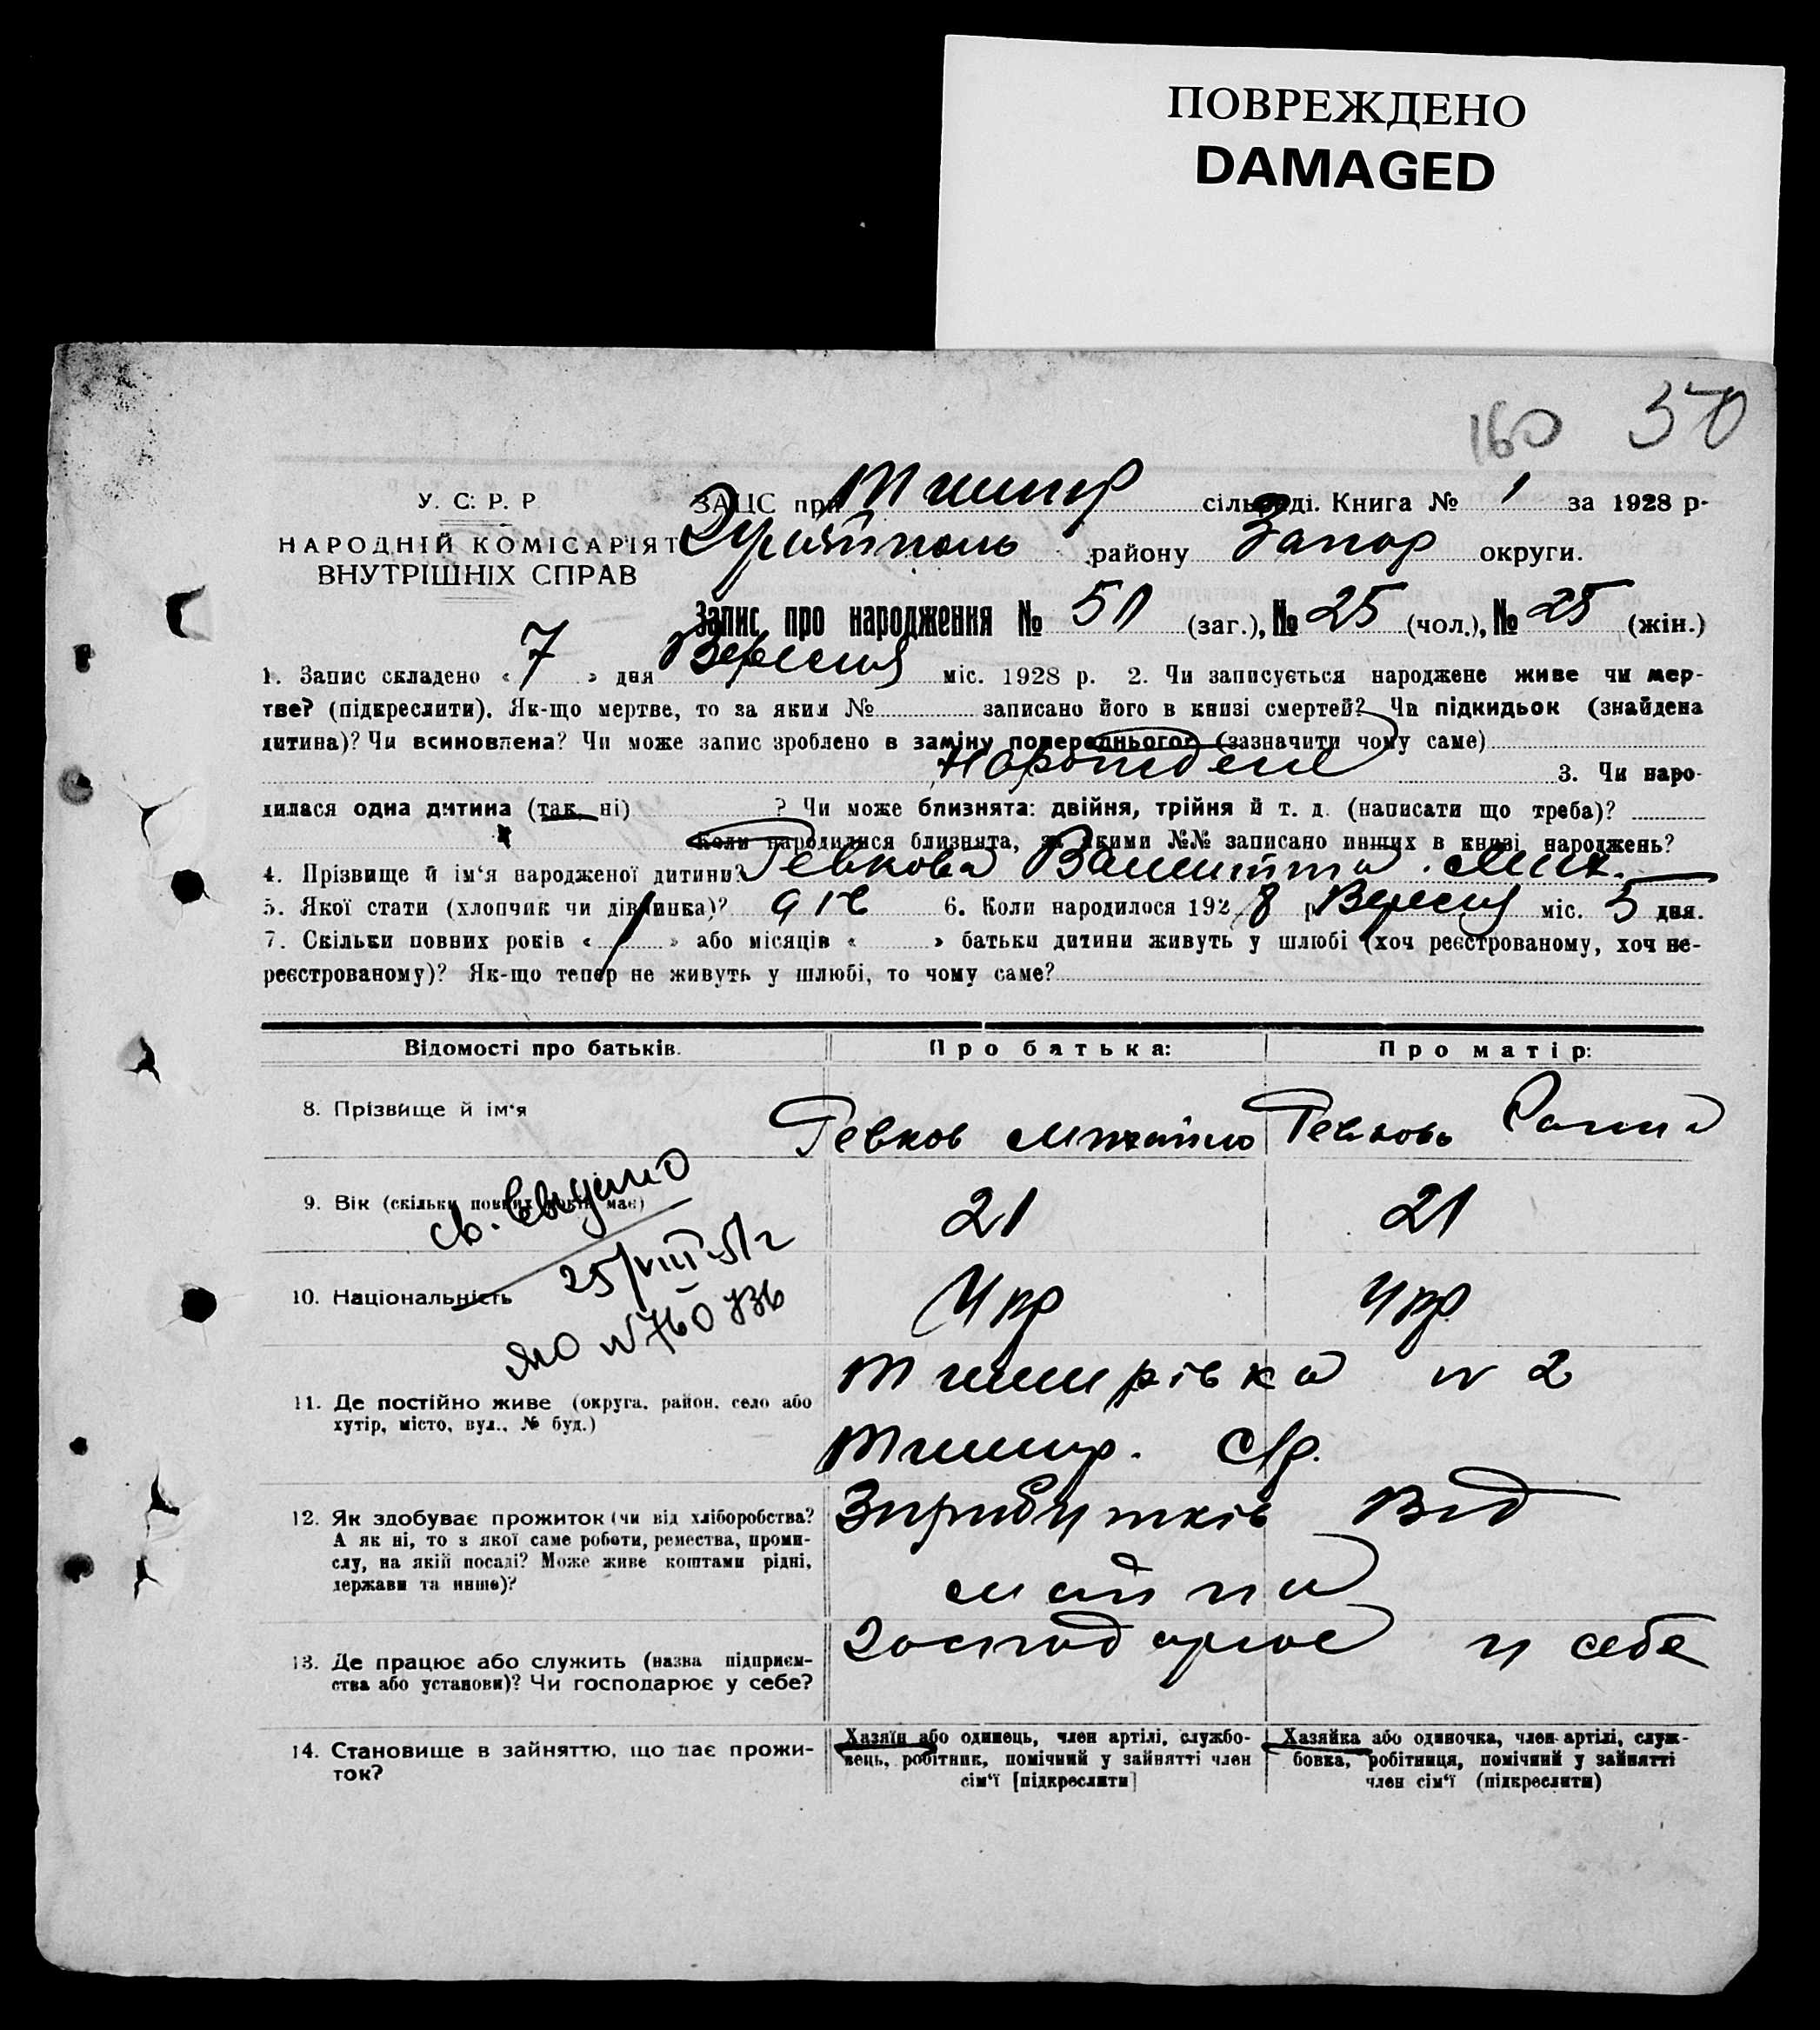 ПОВРЕЖДЕНО
DAMAGED
160 50
У. С. Р. Р.
НАРОДНІЙ КОМІСАРІЯТ
ВНУТРІШНІХ СПРАВ
ЗАЦС при сільраді. Книга № 1 за 1928 р.
району Запор округи.
Запис про народження № (заг.), № 25 (чол.), № 25 (жін.)
1. Запис складено « 7 » дня Вересня міс. 1928 р. 2. Чи записується народжене живе чи мер-
тве? (підкреслити). Як-що мертве, то за яким № записано його в книзі смертей? Чи підкидьок (знайдена
дитина)? Чи всиновлена? Чи може запис зроблено в заміну попереднього? (зазначити чому саме)
3. Чи наро-
дилася одна дитина (так, ні) ? Чи може близнята: двійня, трійня й т. д. (написати що треба)?
Коли народилися близнята, за якими №№ записано инших в книзі народжень?
4. Прізвище й ім'я народженої дитини? Гевкова Мих.
5. Якої стати (хлопчик чи дівчинка)? дів 6. Коли народилося 1928 р. Вересня міс. 5 дня.
7. Скільки повних років « » або місяців « » батьки дитини живуть у шлюбі (хоч реєстрованому, хоч не-
реєстрованому)? Як-що тепер не живуть у шлюбі, то чому саме?
Відомості про батьків. Про батька: Про матір:
8. Прізвище й ім'я Гевков Михайло Гевкова
9. Вік (скільки повних років має) 21 21
св.
25/VIII 51 г
10. Національність Укр Укр
ЯЮ №
11. Де постійно живе (округа, район, село або
хутір, місто, вул., № буд.)
№ 2
С/р.
12. Як здобуває прожиток (чи від хліборобства?
А як ні, то з якої саме роботи, ремества, проми-
слу, на якій посаді? Може живе коштами рідні,
держави та инше)?
від
майна
13. Де працює або служить (назва підприєм-
ства або установи)? Чи господарює у себе?
Господарює у себе
14. Становище в зайняттю, що дає прожи-
ток?
Хазяїн або одинець, член артілі, службо-
вець, робітник, помічний у зайнятті член
сім'ї [підкреслити]
Хазяйка або одиночка, член артілі, служ-
бовка, робітниця, помічний у зайнятті
член сім'ї (підкреслити)